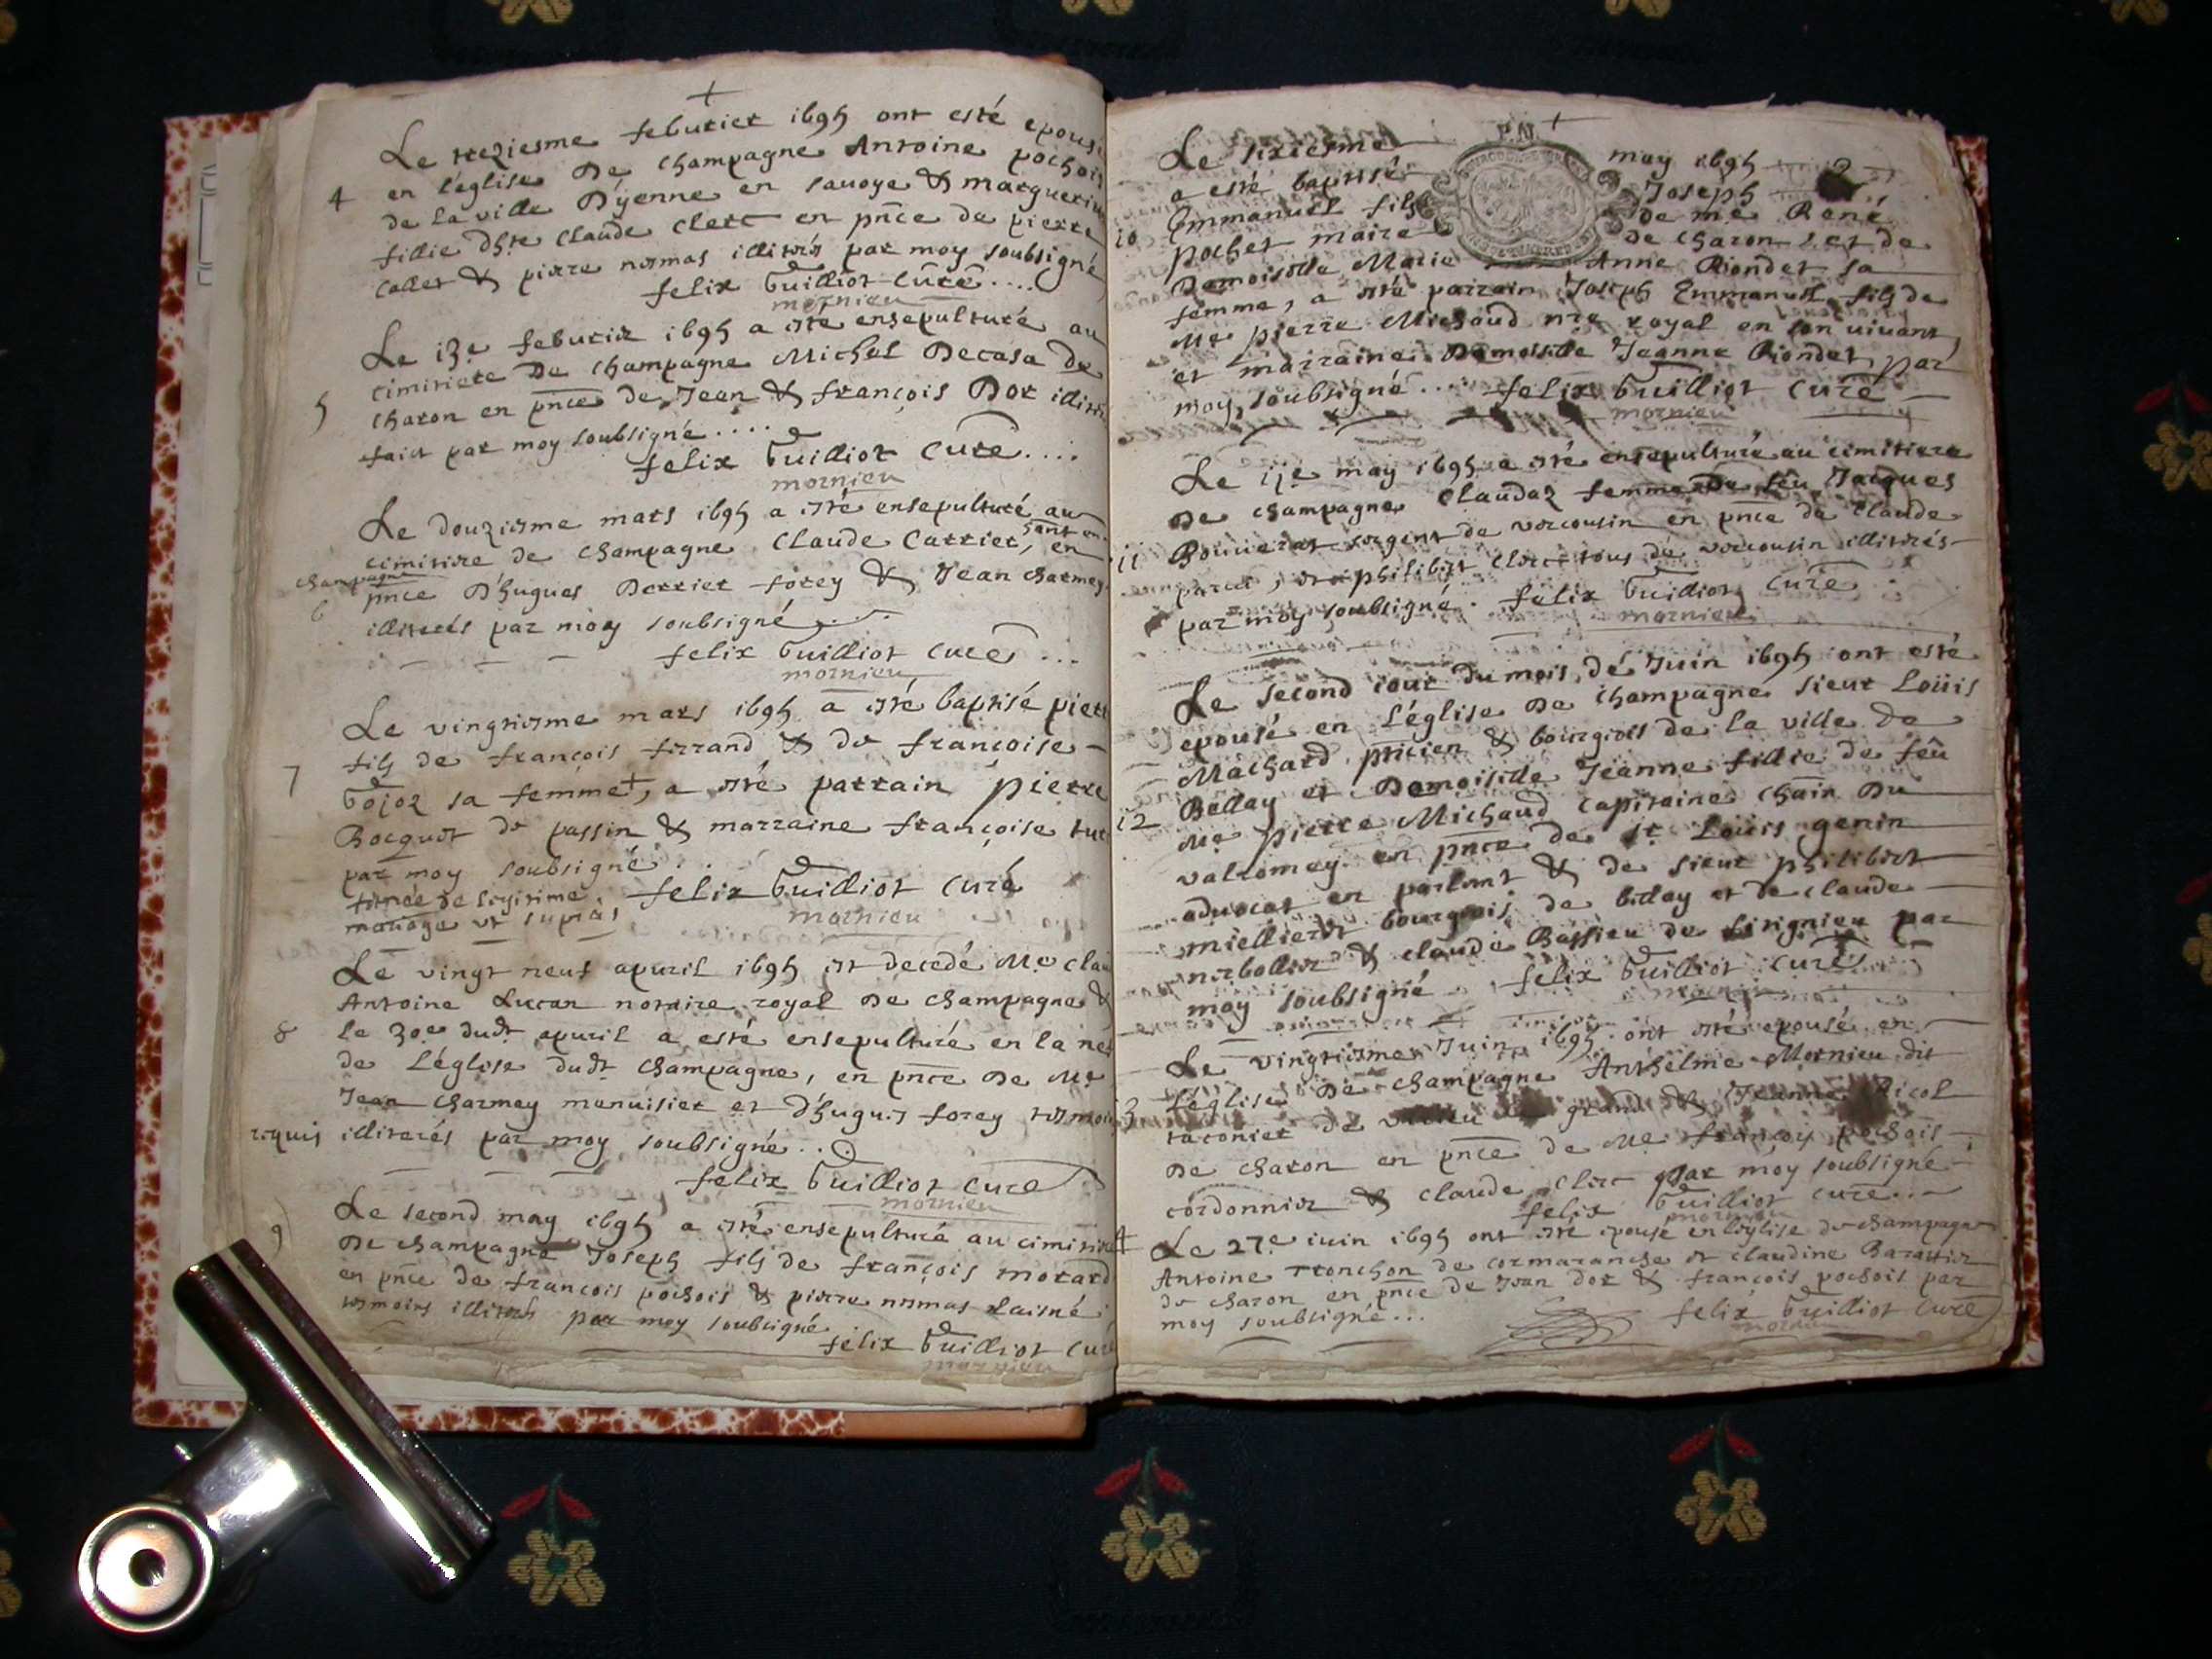 +
Le treziesme feburier 1695 ont esté epousé
4
en l'église De Champagne Antoine pochois
de la ville D'yenne en sauoye & marguerite
fillie dhte Claude Clerc en pnce de pierre
Collet & pierre nermas illiterés par moy soubsigné
felix Guilliot Curé....
mornieu
Le 13e feburier 1695 a esté ensepulturé au
cimitiere De Champagne Michel Decasa de
5
Charon en pnce de Jean & françois Dor
faict par moy soubsigné....
felix Guilliot Curé....
mornieu
Le douziesme mars 1695 a esté ensepulturé au
cimitiere de Champagne Claude Carrier, en
Champagne
6
pnce D'hugues Derrier forey & Jean charmey
illiterés par moy soubsigné
felix Guilliot Curé...
mornieu
Le vingtiesme mars 1695 a esté baptisé
fils de françois ferrand & de françoise
7
Gojoz sa femme+, a esté parrain pierre
Bocquet de passin & marraine françoise
par moy soubsigné..
felix Guilliot Curé
de legitime
mariage ut supra
mornieu
Le vingt neuf apuril 1695 est decedé Me
Antoine Lucan notaire royal De Champagne &
8
le 30e dudt apuril a esté ensepulturé en la
de L'église dudt Champagne, en pnce De Me
Jean Charmey menuisier et d'hugues forey
requis illiterés par moy soubsigné...
felix Guilliot Curé
mornieu
9
Le second may 1695 a esté ensepulturé au
De Champagne Joseph fils de françois morard
en pnce de francois pochois & pierre nermas Laisné
tesmoins illiterés par moy soubsigné
felix Guilliot Curé
mornieu
P.M. +
Le sixiesme may 1695
a esté baptisé Joseph
Emmanuel fils de me René
10
pochet maire de Charon et de
Demoiselle Marie Anne Riondet sa
femme, a esté parrain Joseph Emmanuel fils de
Me pierre Michaud nre royal en son uiuant,
et marraine Demoiselle Jeanne Riondet par
moy soubsigné... felix Guilliot Curé
mornieu
Le 11e may 1695 a esté ensepulturé au cimitiere
De Champagne Claudaz femme De feu Jacques
11
sargent de vercousin en pnce de Claude
et philibert Clerc tous de vercousin illiterés
par moy soubsigné. felix Guilliot Curé
mornieu
Le second iour du mois de Juin 1695 ont esté
epousé en L'église De Champagne sieur Loüis
Machard pticien & bourgeois de la ville de
Bellay et Demoiselle Jeanne fillie de feu
12
Me pierre Michaud Capitaine Chain Du
valromey en pnce de sr Loüis genin
aduocat en parlemt & de sieur philibert
bourgeois de bellay et de claude
& claude Bassieu de par
moy soubsigné felix Guilliot Curé
mornieu
Le vingtiesme Juin 1695 ont esté epousé en
L'église De Champagne Anthelme Mornieu dit
13
taconier de vieu le grand & Jeanne Nicol
De Charon en pnce de Me françois pochois
cordonnier & Claude Clerc par moy soubsigné
felix Guilliot Curé...
mornieu
14
Le 27e iuin 1695 ont esté epousé en L'église de Champagne
Antoine Tronchon de cormaranche et Claudine
de Charon en pnce de Jean Dor & françois pochois par
moy soubsigné... felix Guilliot Curé
mornieu